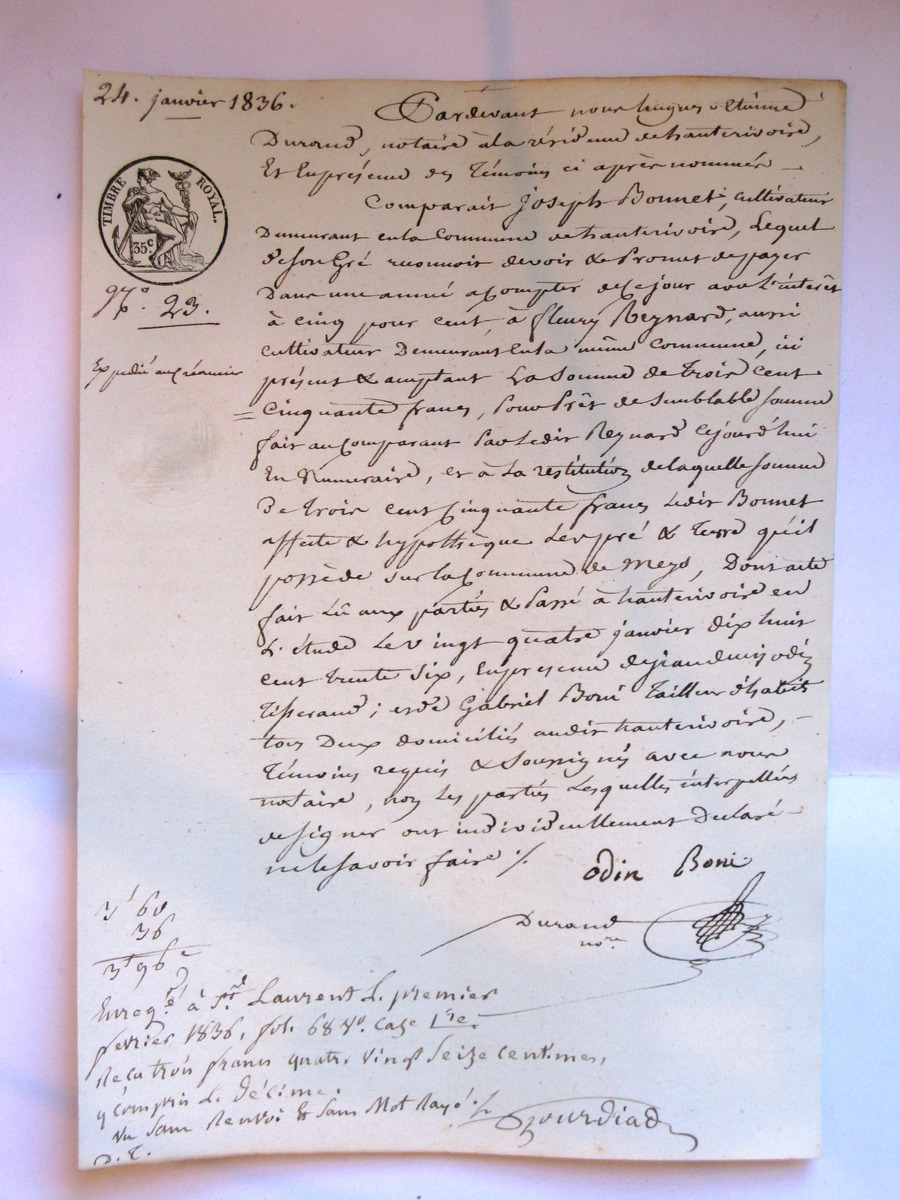 24. janvier 1836.
Pardevant nous hugues etienne
Durand, notaire à la résidence de hauterivoire,
Et En présence des Témoins ci après nommés
Comparait Joseph Bonnet, cultivateur
Demeurant en la Commune de hauterivoire, Lequel
de son Gré reconnoit devoir & Promet de payer
TIMBRE ROYAL.
35c
Dans une année a Compter de Ce jour avec L'intérêt
N.o 23.
à cinq pour cent, à fleury Reynard, aussi
cultivateur Demeurant En la même Commune, ici
Expédié au Créancier
présent & acceptant La Somme de Trois Cent
Cinquante francs, Pour Prêt de Semblable somme
fait au Comparant Par Ledit Reynard Cejourd'hui
En Numeraire, et à La restitution de laquelle somme
De trois cent Cinquante francs Ledit Bonnet
affecte & hypothèque Les pré & Terre qu'il
possède sur la Commune de Meys, Dont acte
fait Lû aux parties & Passé à hauterivoire en
L'étude Le vingt quatre janvier dix huit
cent trente six, En presence de jean denis odin
Tisserand; et de Gabriel Boni Tailleur d'habits
tous Deux domiciliés audit hauterivoire,
témoins requis & Soussignés avec nous
notaire, non Les parties Lesquelles interpellées
de signer ont individuellement Declaré
ne le savoir faire ./.
odin Boni
Durand
nore
3f 60
36
3f 96c
Enregé à St Laurent L. premier
fevrier 1836, fol. 68 Vo. Case 1re.
Reçu trois francs quatre Vingt Seize centimes,
y compris Le Décime.
Vu Sans Renvoi Et Sans Mot Rayé ./.
Gourdiad
D. T.